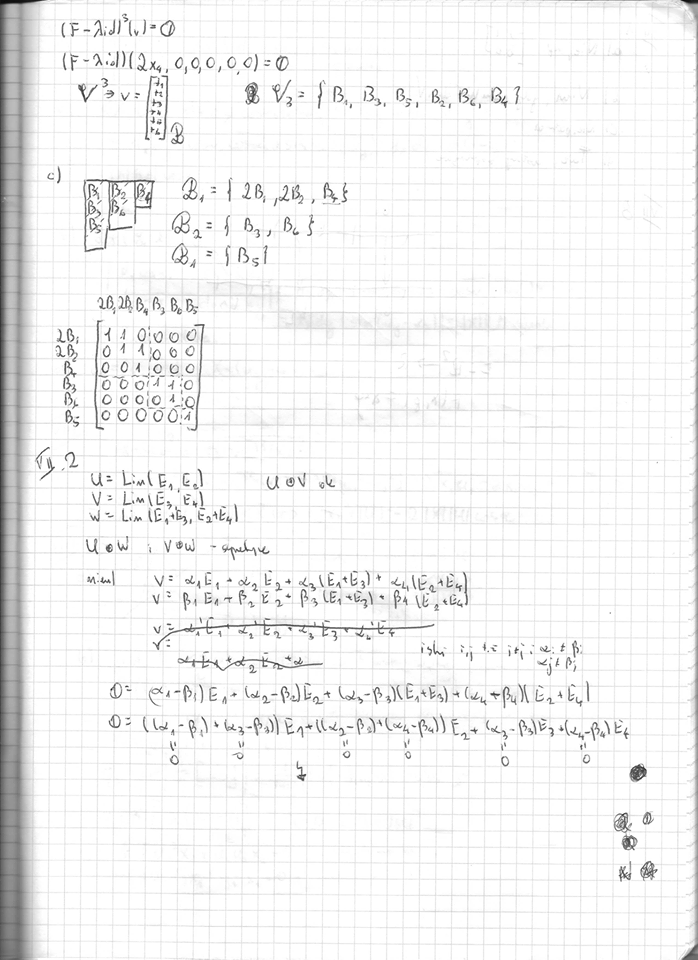 (F-λid)³(v)=𝟘
(F-λid)(2x₄, 0, 0, 0, 0, 0)=𝟘
V³∋v= 𝓑
𝒱₃ = { B₁, B₃, B₅, B₂, B₆, B₄ }
c)
B₁ B₂ B₄
B₃ B₆
B₅
𝓑₁ = { 2B₁, 2B₂, B₄ }
𝓑₂ = { B₃, B₆ }
𝓑₁ = { B₅ }
2B₁ 2B₂ B₄ B₃ B₆ B₅
2B₁ 1 1 0 0 0 0
2B₂ 0 1 1 0 0 0
B₄ 0 0 1 0 0 0
B₃ 0 0 0 1 1 0
B₆ 0 0 0 0 1 0
B₅ 0 0 0 0 0 1
VII.2
U = Lin( E₁, E₂) U⊕V ok
V = Lin( E₃, E₄)
W = Lin( E₁+E₃, E₂+E₄)
U⊕W i V⊕W -
v = α₁E₁ + α₂E₂ + α₃(E₁+E₃) + α₄(E₂+E₄)
v = β₁E₁ + β₂E₂ + β₃(E₁+E₃) + β₄(E₂+E₄)
v = α₁'E₁ + α₂'E₂ + α₃'E₃ + α₄'E₄
v =
α₁E₁ + α₂E₂ + α
i≠j : αᵢ ≠ βᵢ
αⱼ ≠ βⱼ
𝟘 = (α₁-β₁)E₁ + (α₂-β₂)E₂ + (α₃-β₃)(E₁+E₃) + (α₄-β₄)(E₂+E₄)
𝟘 = ((α₁-β₁)+(α₃-β₃))E₁ + ((α₂-β₂)+(α₄-β₄))E₂ + (α₃-β₃)E₃ + (α₄-β₄)E₄
= = = = = =
0 0 0 0 0 0